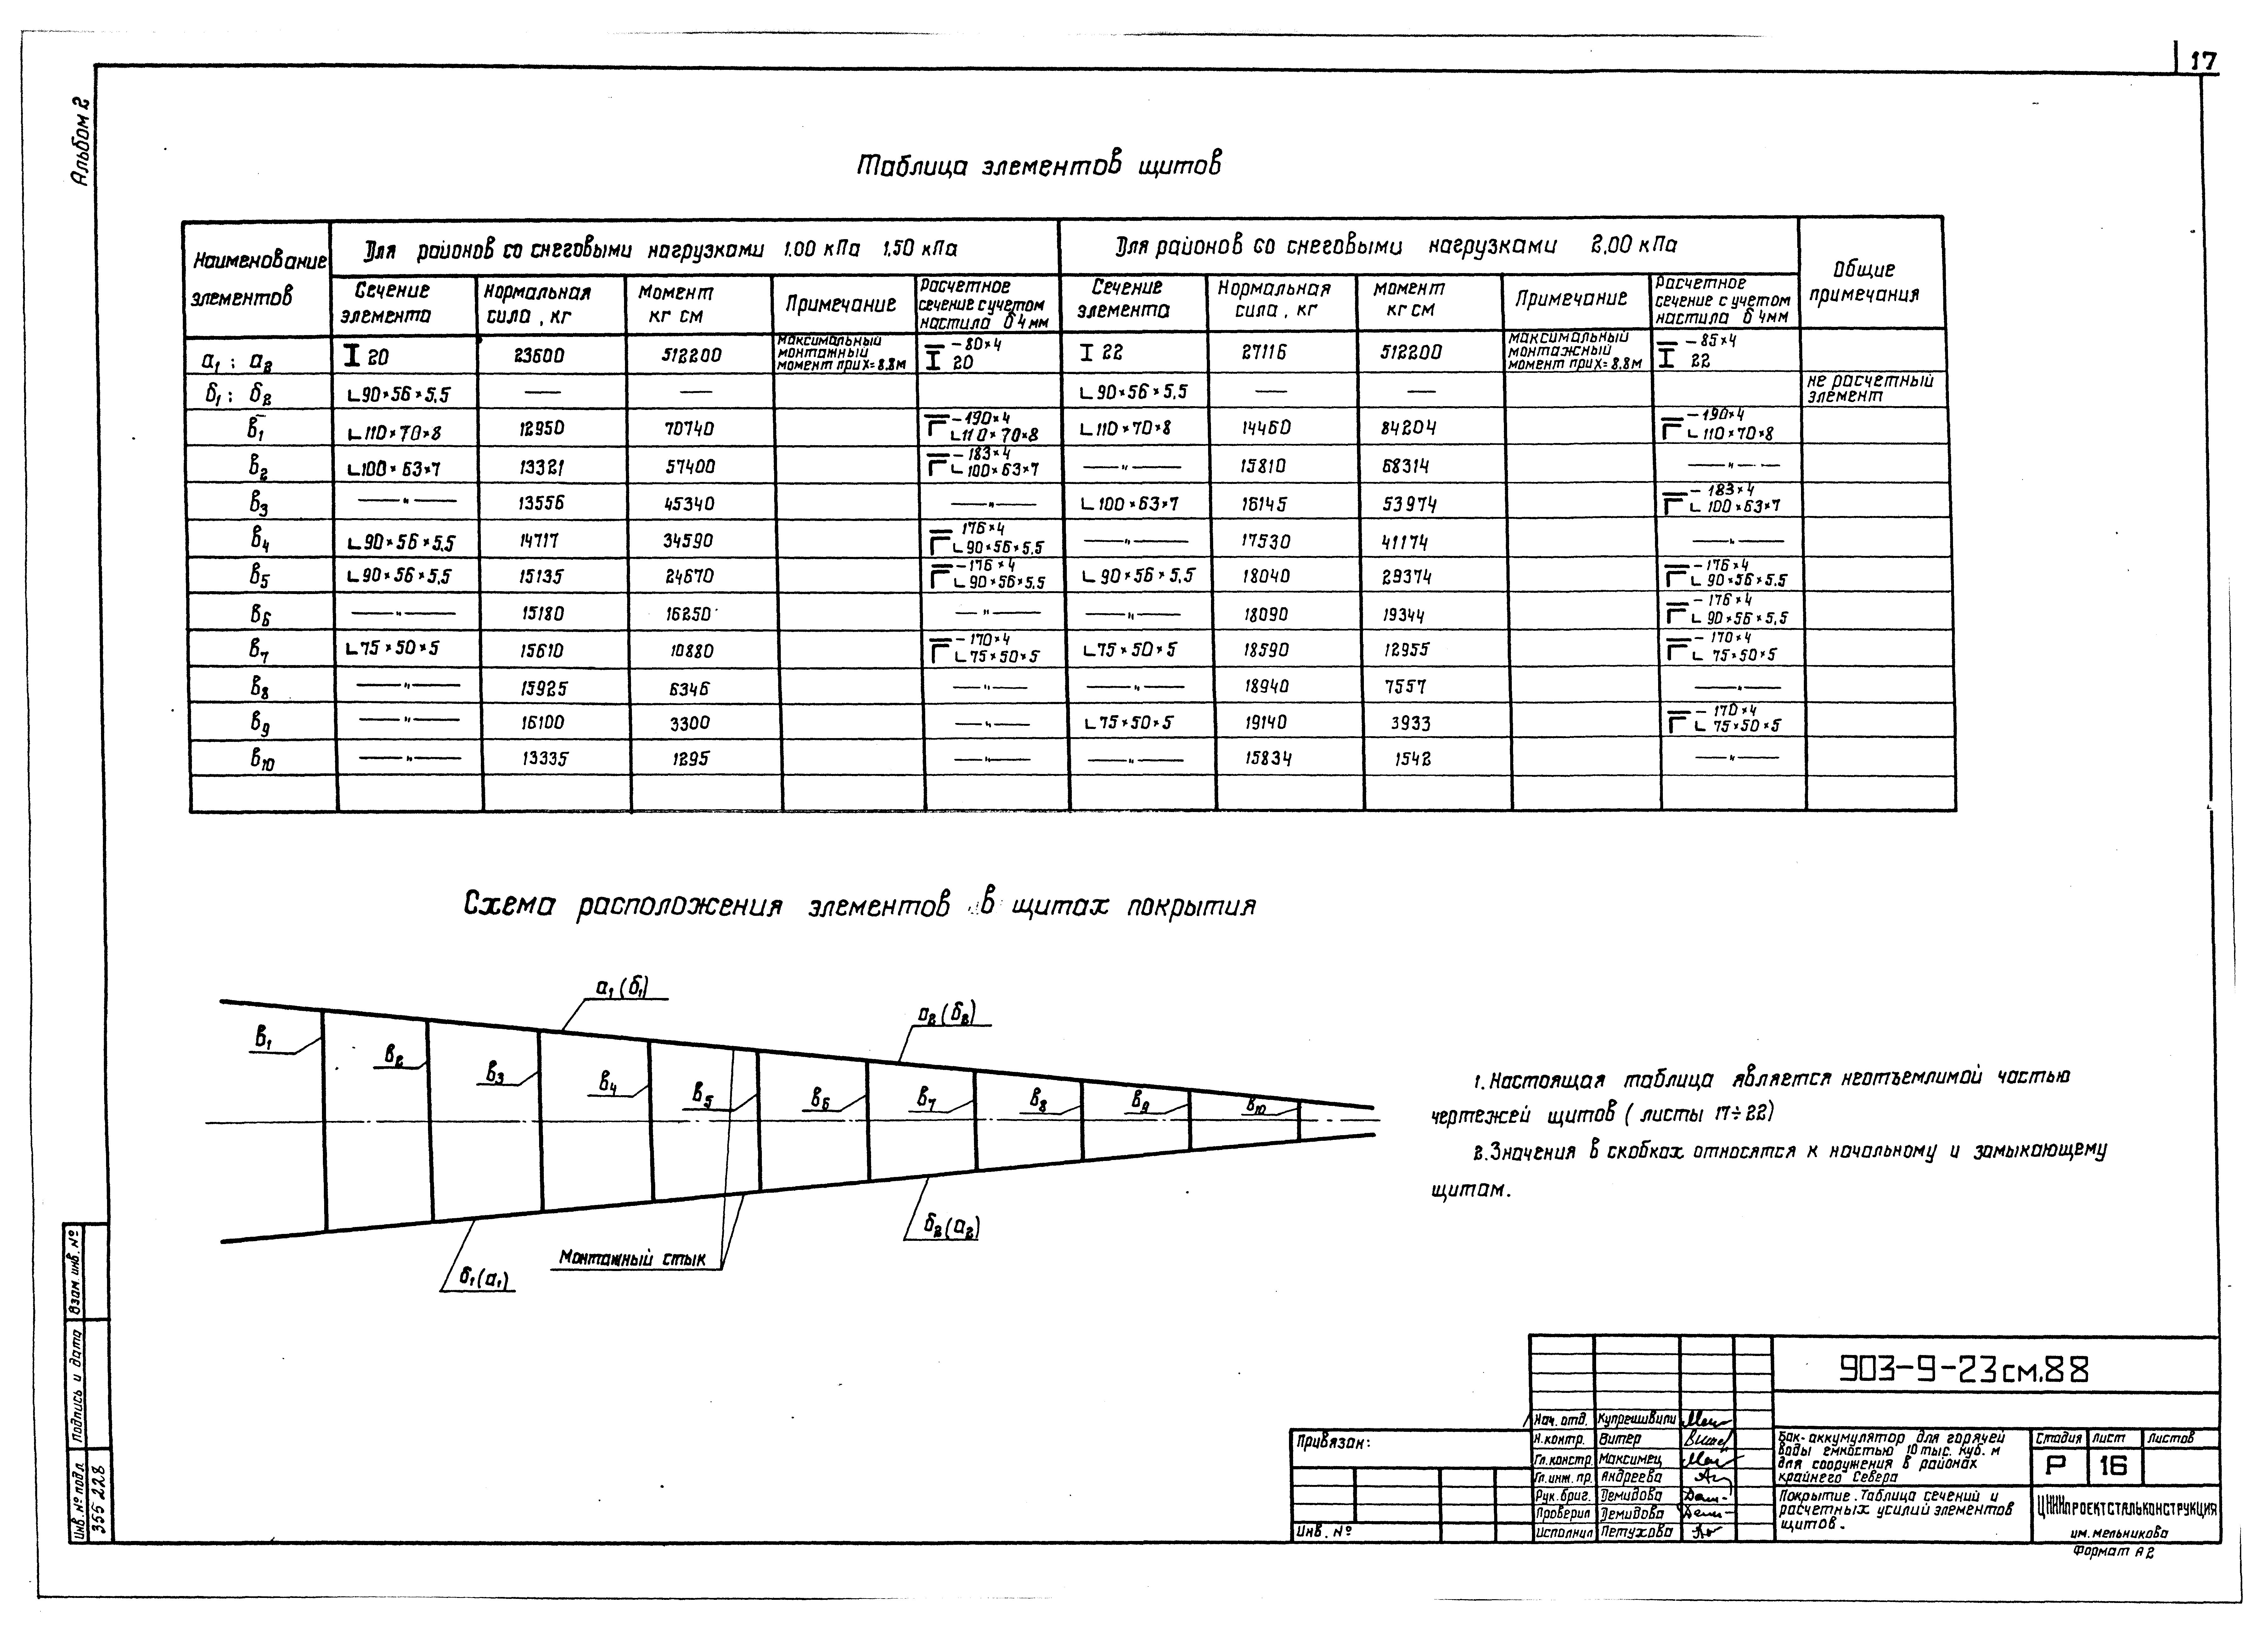 17
Альбом 2
Таблица элементов щитов
Наименование элементов
Для районов со снеговыми нагрузками 1.00 кПа 1,50 кПа
Для районов со снеговыми нагрузками 2,00 кПа
Общие примечания
Сечение элемента | Нормальная сила, кг | Момент кг см | Примечание | Расчетное сечение с учетом настила б 4 мм | Сечение элемента | Нормальная сила, кг | Момент кг см | Примечание | Расчетное сечение с учетом настила б 4мм
а1; а2 | I 20 | 23600 | 512200 | максимальный монтажный момент при х=8.8м | – 80×4 I 20 | I 22 | 27116 | 512200 | максимальный монтажный момент при х=8.8м | – 85×4 I 22
б1; б2 | ∟90×56×5,5 | — | — | ∟90×56×5,5 | — | — | не расчетный элемент
в1 | ∟110×70×8 | 12950 | 70740 | – 190×4 ∟110×70×8 | ∟110×70×8 | 14460 | 84204 | – 190×4 ∟110×70×8
в2 | ∟100×63×7 | 13321 | 57400 | – 183×4 ∟100×63×7 | —"— | 15810 | 68314 | —"—
в3 | —"— | 13556 | 45340 | —"— | ∟100×63×7 | 16145 | 53974 | – 183×4 ∟100×63×7
в4 | ∟90×56×5,5 | 14717 | 34590 | 176×4 ∟90×56×5,5 | —"— | 17530 | 41174 | —"—
в5 | ∟90×56×5,5 | 15135 | 24670 | – 176×4 ∟90×56×5,5 | ∟90×56×5,5 | 18040 | 29374 | – 176×4 ∟90×56×5.5
в6 | —"— | 15180 | 16250 | —"— | —"— | 18090 | 19344 | – 176×4 ∟90×56×5,5
в7 | ∟75×50×5 | 15610 | 10880 | – 170×4 ∟75×50×5 | ∟75×50×5 | 18590 | 12955 | – 170×4 ∟75×50×5
в8 | —"— | 15925 | 6346 | —"— | —"— | 18940 | 7557 | —"—
в9 | —"— | 16100 | 3300 | —"— | ∟75×50×5 | 19140 | 3933 | – 170×4 ∟75×50×5
в10 | —"— | 13335 | 1295 | —"— | —"— | 15834 | 1542 | —"—
Схема расположения элементов в щитах покрытия
а1 (б1)
а2 (б2)
в1
в2
в3
в4
в5
в6
в7
в8
в9
в10
б2 (а2)
Монтажный стык
б1 (а1)
1. Настоящая таблица является неотъемлимой частью
чертежей щитов (листы 17÷22)
2. Значения в скобках относятся к начальному и замыкающему
щитам.
Взам. инв. №
Подпись и дата
Инв. № подл.
355 228
Привязан:
Инв. №
Нач. отд. Купреишвили
Н.контр. Витер
Гл.констр. Максимец
Гл.инж.пр. Андреева
Рук.бриг. Демидова
Проверил Демидова
Исполнил Петухова
903-9-23см.88
Бак-аккумулятор для горячей
воды емкостью 10 тыс. куб. м
для сооружения в районах
крайнего Севера
Стадия Лист Листов
Р 16
Покрытие. Таблица сечений и
расчетных усилий элементов
щитов.
ЦНИИпроектстальконструкция
им. Мельникова
Формат А2